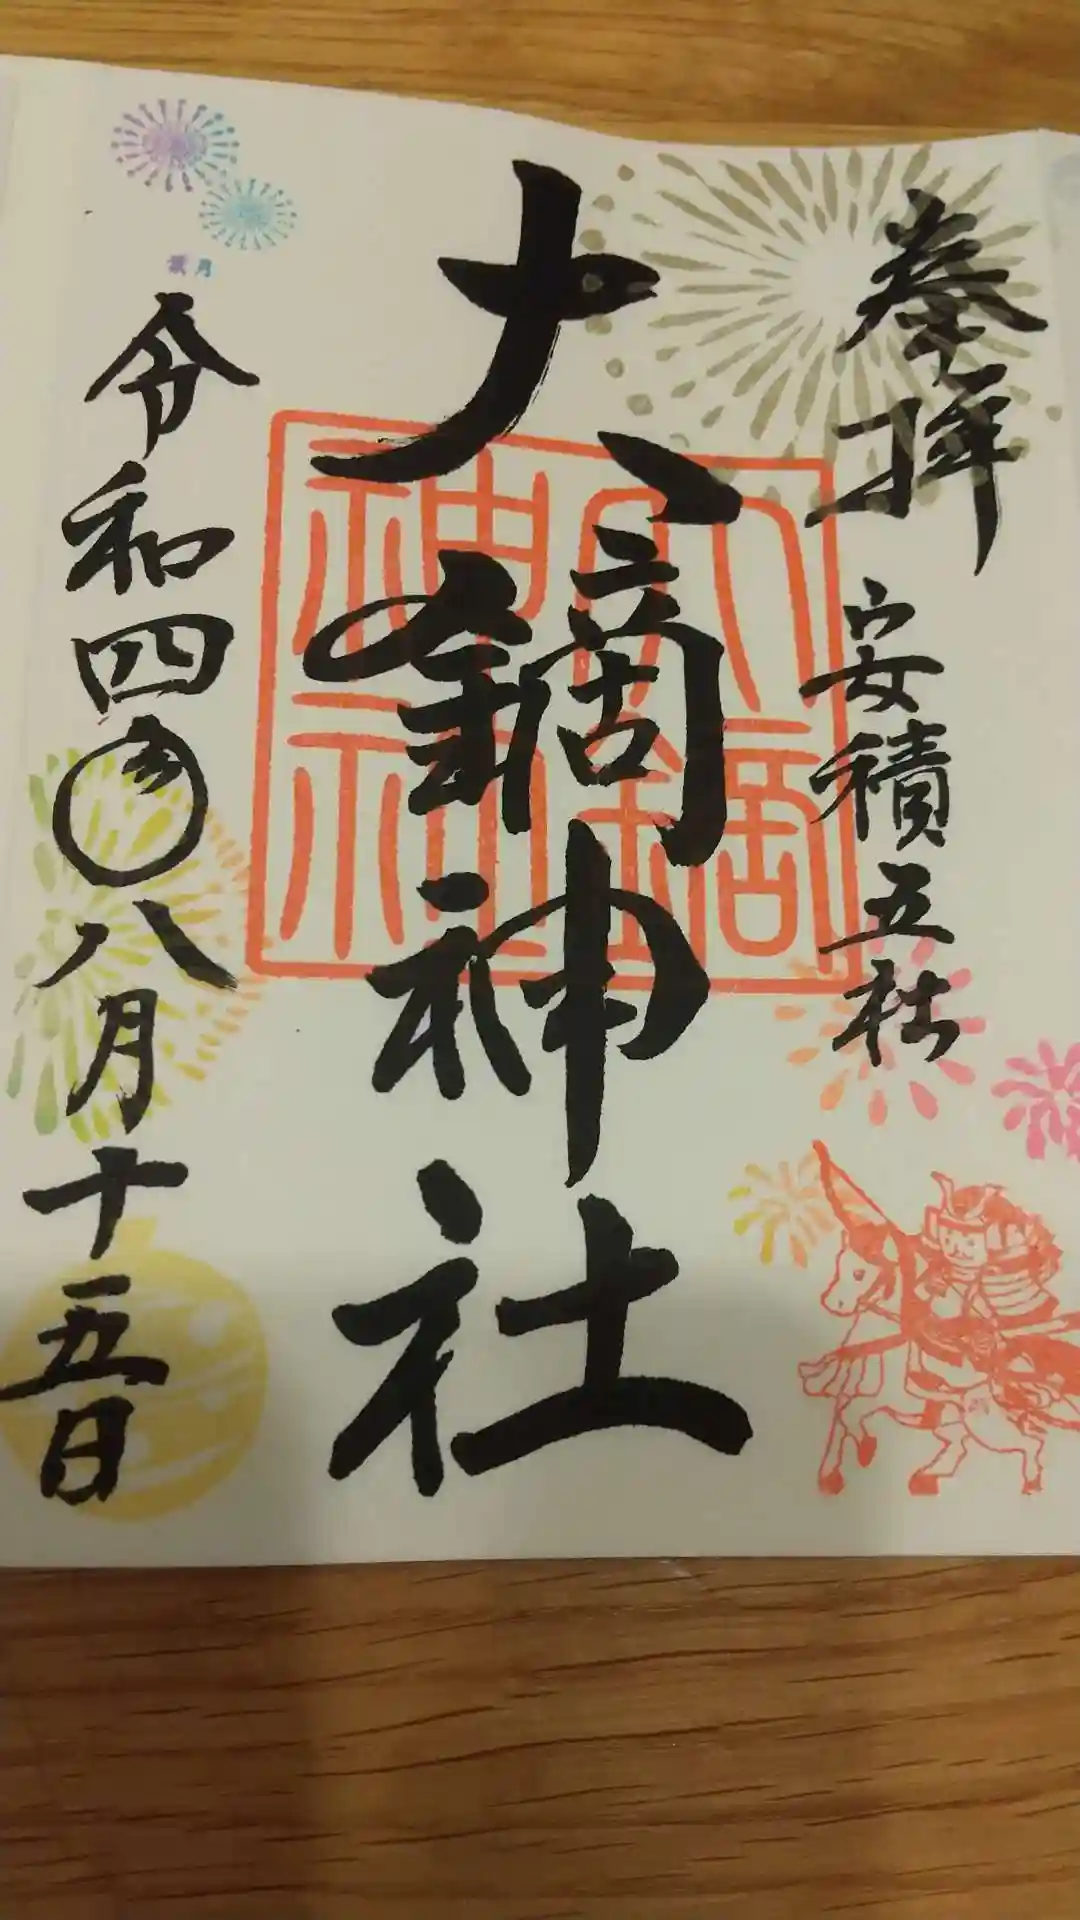 奉拝
安積五社
大鏑神社
大鏑
神社
葉月
令和四年八月十五日